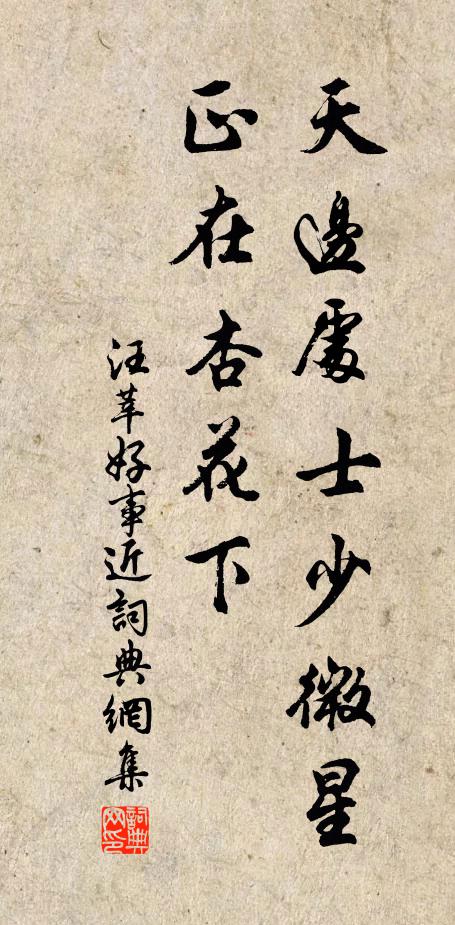 天邊處士少微星
正在杏花下
汪莘好事近詞典網集
詞典網印